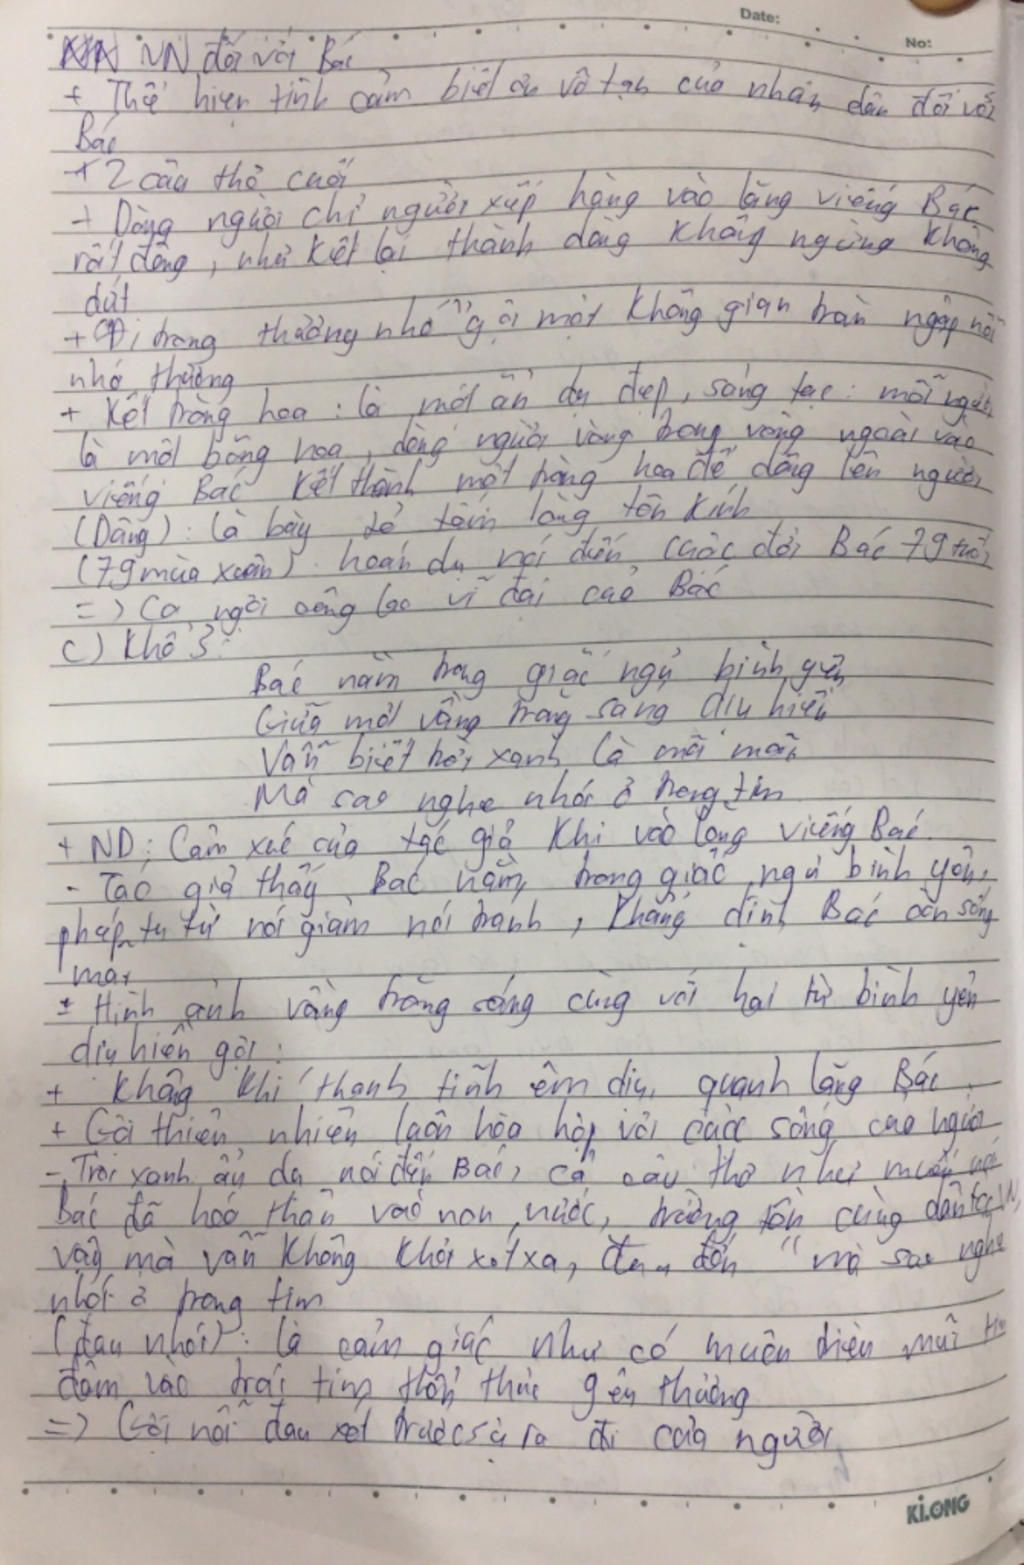 Date:
No:
VN đối với Bác
+ Thể hiện tình cảm biết ơn vô tận của nhân dân đối với
Bác
+ 2 câu thơ cuối
+ Dòng người chỉ người xếp hàng vào lăng viếng Bác
rất đông, như kết lại thành dòng không ngừng không
dứt
+ "Đi trong thương nhớ" gợi một không gian tràn ngập nỗi
nhớ thương
+ Kết tràng hoa: là một ẩn dụ đẹp, sáng tạo: mỗi người
là một bông hoa, dòng người vòng trong vòng ngoài vào
viếng Bác kết thành một tràng hoa để dâng lên người
(Dâng): là bày tỏ tấm lòng tôn kính
(79 mùa xuân): hoán dụ nói đến cuộc đời Bác 79 tuổi
=> Ca ngợi công lao vĩ đại của Bác
c) Khổ 3:
Bác nằm trong giấc ngủ bình yên
Giữa một vầng trăng sáng dịu hiền
Vẫn biết trời xanh là mãi mãi
Mà sao nghe nhói ở trong tim
+ ND: Cảm xúc của tác giả khi vào lăng viếng Bác.
- Tác giả thấy Bác nằm trong giấc ngủ bình yên,
phép tu từ nói giảm nói tránh, khẳng định Bác còn sống
mãi
+ Hình ảnh vầng trăng sáng cùng với hai từ bình yên
dịu hiền gợi:
+ Không khí thanh tĩnh êm dịu quanh lăng Bác
+ Gợi thiên nhiên luôn hòa hợp với cuộc sống con người
- Trời xanh ẩn dụ nói đến Bác, cả câu thơ như muốn nói
Bác đã hoá thân vào non nước, trường tồn cùng dân tộc VN,
vậy mà vẫn không khỏi xót xa, đau đớn "mà sao nghe
nhói ở trong tim
(đau nhói): là cảm giác như có muôn triệu mũi
đâm vào trái tim thổn thức yêu thương
=> Gợi nỗi đau xót trước sự ra đi của người
KLONG